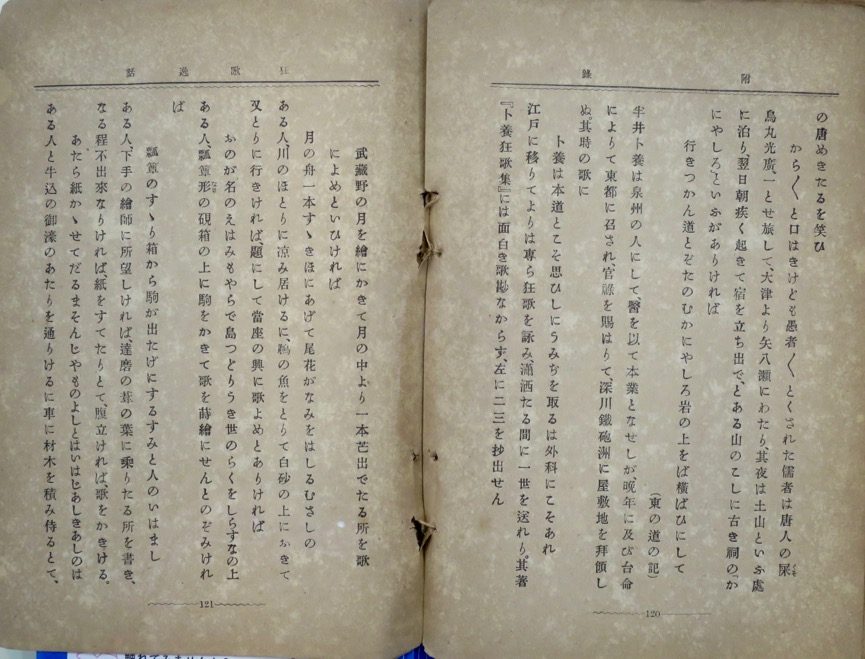 附錄
の唐めきたるを笑ひ
から〱と口はきけども愚者〱とくされた儒者は唐人の屎
烏丸光廣、一とせ旅して、大津より矢八瀬にわたり、其夜は土山といふ處
に泊り、翌日朝疾く起きて宿を立ち出で、とある山のこしに古き祠の『か
にやしろ』といふがありければ
行きつかん道とぞたのむかにやしろ岩の上をば横ばひにして
(東の道の記)
半井卜養は泉州の人にして、醫を以て本業となせしが、晩年に及び台命
によりて東都に召され、官祿を賜はりて、深川鐵砲洲に屋敷地を拜領し
ぬ。其時の歌に
卜養は本道とこそ思ひしにうみぢを取るは外科にこそあれ
江戸に移りてよりは專ら狂歌を詠み、瀟洒たる間に一世を送れり。其著
『卜養狂歌集』には面白き歌尠なからず、左に二三を抄出せん
120
狂歌逸話
武藏野の月を繪にかきて月の中より一本芒出でたる所を歌
によめといひければ
月の舟一本すゝきほにあげて尾花がなみをはしるむさしの
ある人、川のほとりに涼み居けるに、鵜の魚をとりて白砂の上におきて
又とりに行きければ、題にして當座の興に歌よめとありければ
おのが名のえはみもやらで島つどりうき世のらくをしらすなの上
ある人、瓢簞形の硯箱の上に駒をかきて歌を蒔繪にせんとのぞみけれ
ば
瓢簞のすゞり箱から駒が出たげにするすみと人のいはまし
ある人、下手の繪師に所望しければ、達磨の葦の葉に乘りたる所を書き、
なる程不出來なりければ、紙をすてたりとて、腹立ければ、歌をかきける。
あたら紙かゝせてだるまそんじやものよしとはいはじあしきあしのは
ある人と牛込の御濠のあたりを通りけるに車に材木を積み侍るとて、
121